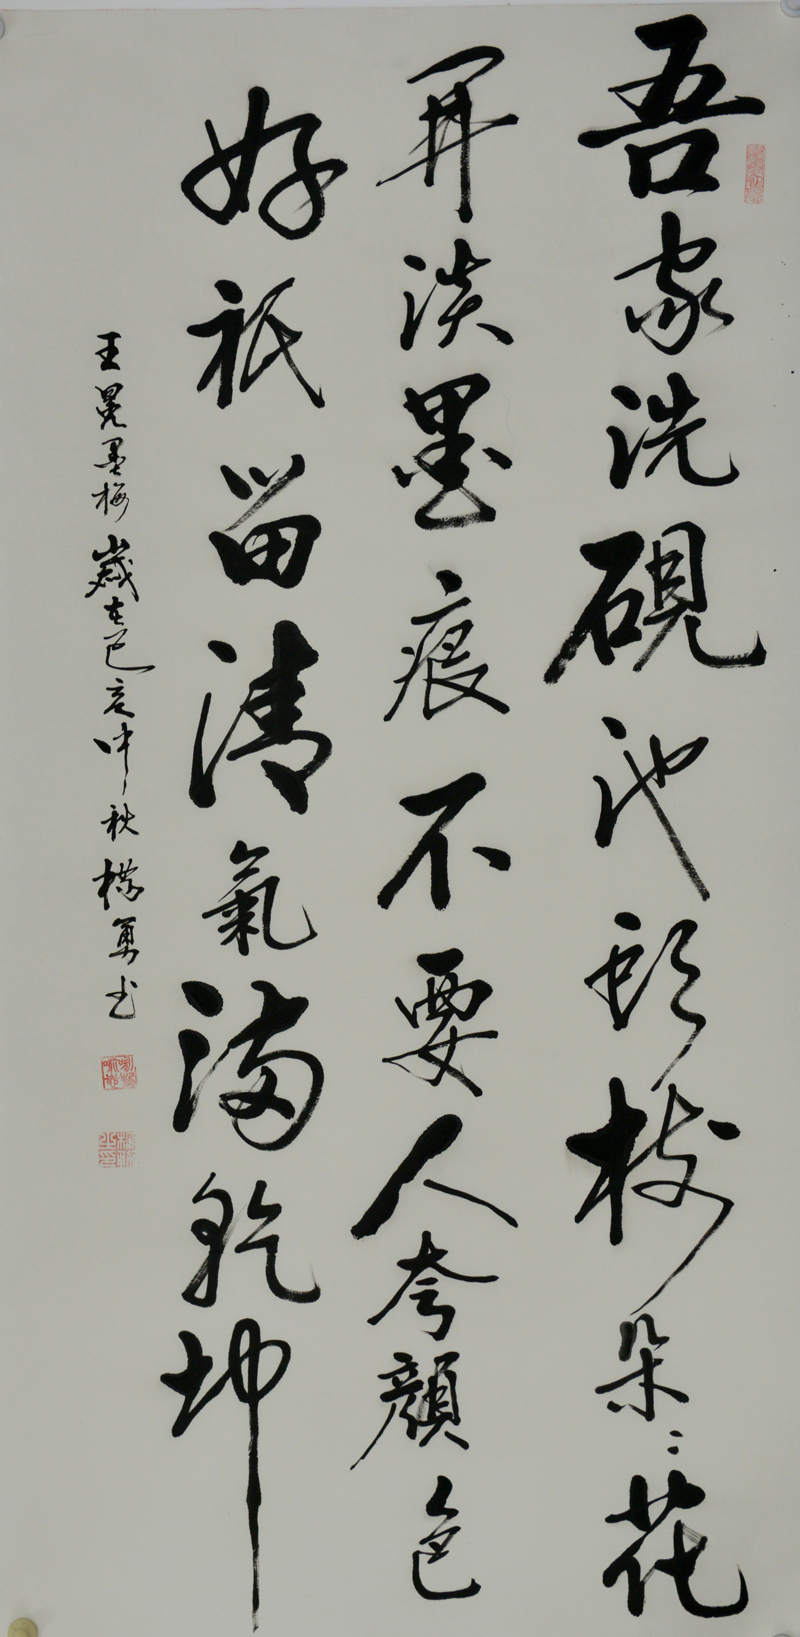 吾家洗硯池頭樹朵〻花
開淡墨痕不要人夸顏色
好祇留清氣滿乾坤
王冕墨梅 歲在己亥中秋 書